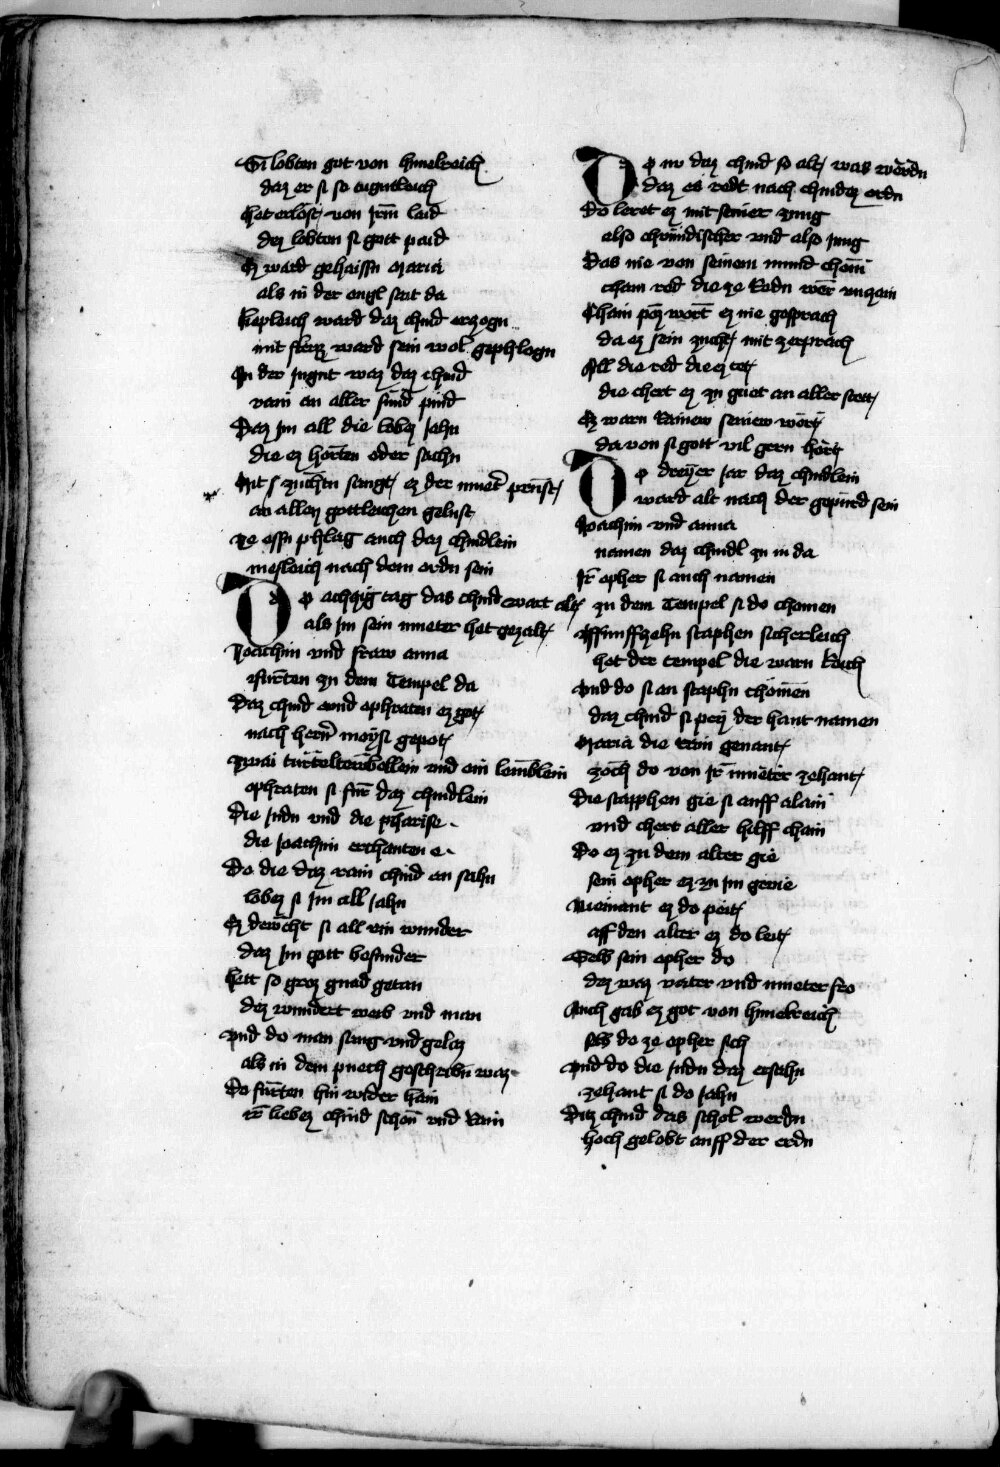 Si lobten got von himelreich
daz er si so tugntleich
Het erlost von irm laid
dez lobten si gott paid
Ez ward gehaissn Maria
als in der engl seit da
Liepleich ward daz chind erzogn
mit fleizz ward sein wol gephlogn
In der iugnt waz daz chind
rain an aller sünd pind
Daz im all die lobez iahn
die ez hortten oder sachn
Mit zuchtn saugt ez der muetr prust
an allen gottleichen gelust
Ze essn phlag auch daz chindlein
mesleich nach dem ordn sein
Do achtzig tag das chind wart alt
als im sein mueter het gezalt
Joachim und fraw anna
furten zu dem Tempel da
Daz chind und ophraten ez got
nach hern moysi gepot
Zwai turteltewbellein und ein lemblein
ophraten si fur daz chindlein
Die Judn und die pharise
die Joachim erchanten e
Do die daz rain chind an sahn
lobez si im all iahn
Ez dewcht si all ein wunder
daz im gott besunder
Hett so groz gnad getan
dez wundert weib und man
Und do man sang und gelaz
als in dem puech geschribn waz
Do furten hin wider haim
ir liebez chind schon und rain
Do nw daz chind so alt was wordn
daz es redt nach chindez ordn
Do leret ez mit seiner zung
also chrindischer und also jung
Das nie von seinem mund chom
chain red die ze Redn wer unzain
Chain poz wort ez nie gesprach
da ez sein zucht mit zerprach
All die red die ez tet
die chert ez zu guet an aller stett
Ez warn Rainew seinew wort
da von si gott vil gern hort
Do dreyer iar daz chindlein
ward alt nach der gepurd sein
Joachim und anna
namen daz chindl zu in da
Ir opher si auch namen
zu dem Tempel si do chomen
Auff funffzehn staphen sicherleich
het der tempel die warn Reich
Und do si an staphn chomen
daz chind si pey der hant namen
Maria die rain genant
zoch do von ir mueter zehant
Die stapphen gie si auff alain
und chert aller hilff chain
Do ez zu dem alter gie
sein opher ez zu im gevie
Niemant ez do peit
auff den alter ez do leit
Selb sein opher do
dez waz vater und mueter fro
Auch gab ez got von himelreich
selb do ze opher sich
Und do die Judn daz ersahn
zehant si do iahn
Ditz chind das schol werdn
hoch gelobt auff der erdn